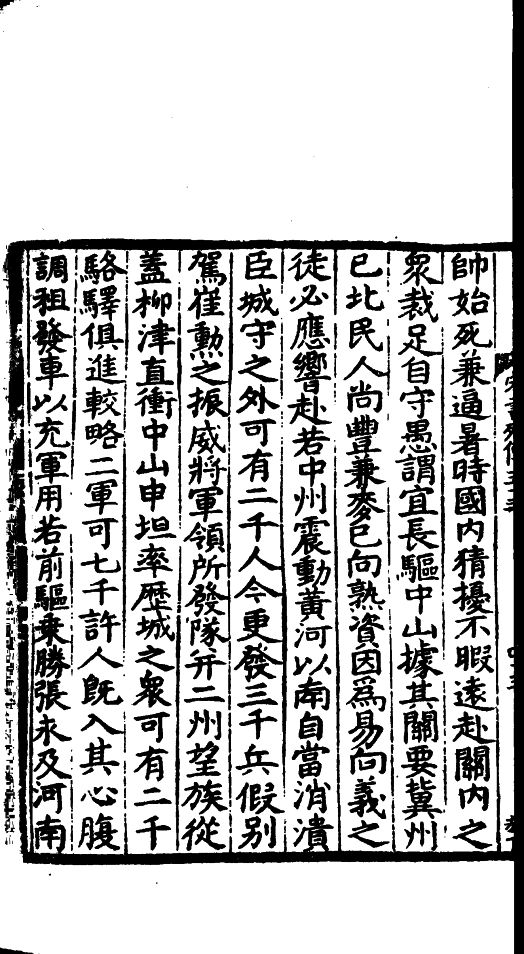 帥始死兼逼暑時國内猜擾不暇遠赴關内之
衆裁足自守愚謂宜長驅中山據其關要冀州
已北民人尚豐兼麥已向熟資因爲易向義之
徒必應響赴若中州震動黄河以南自當消潰
臣城守之外可有二千人今更發三千兵假别
駕崔勲之振威將軍領所發隊并二州望族從
蓋柳津直衝中山申坦率歷城之衆可有二千
駱驛俱進較略二軍可七千許人既入其心腹
調租發車以充軍用若前驅乗勝張永及河南